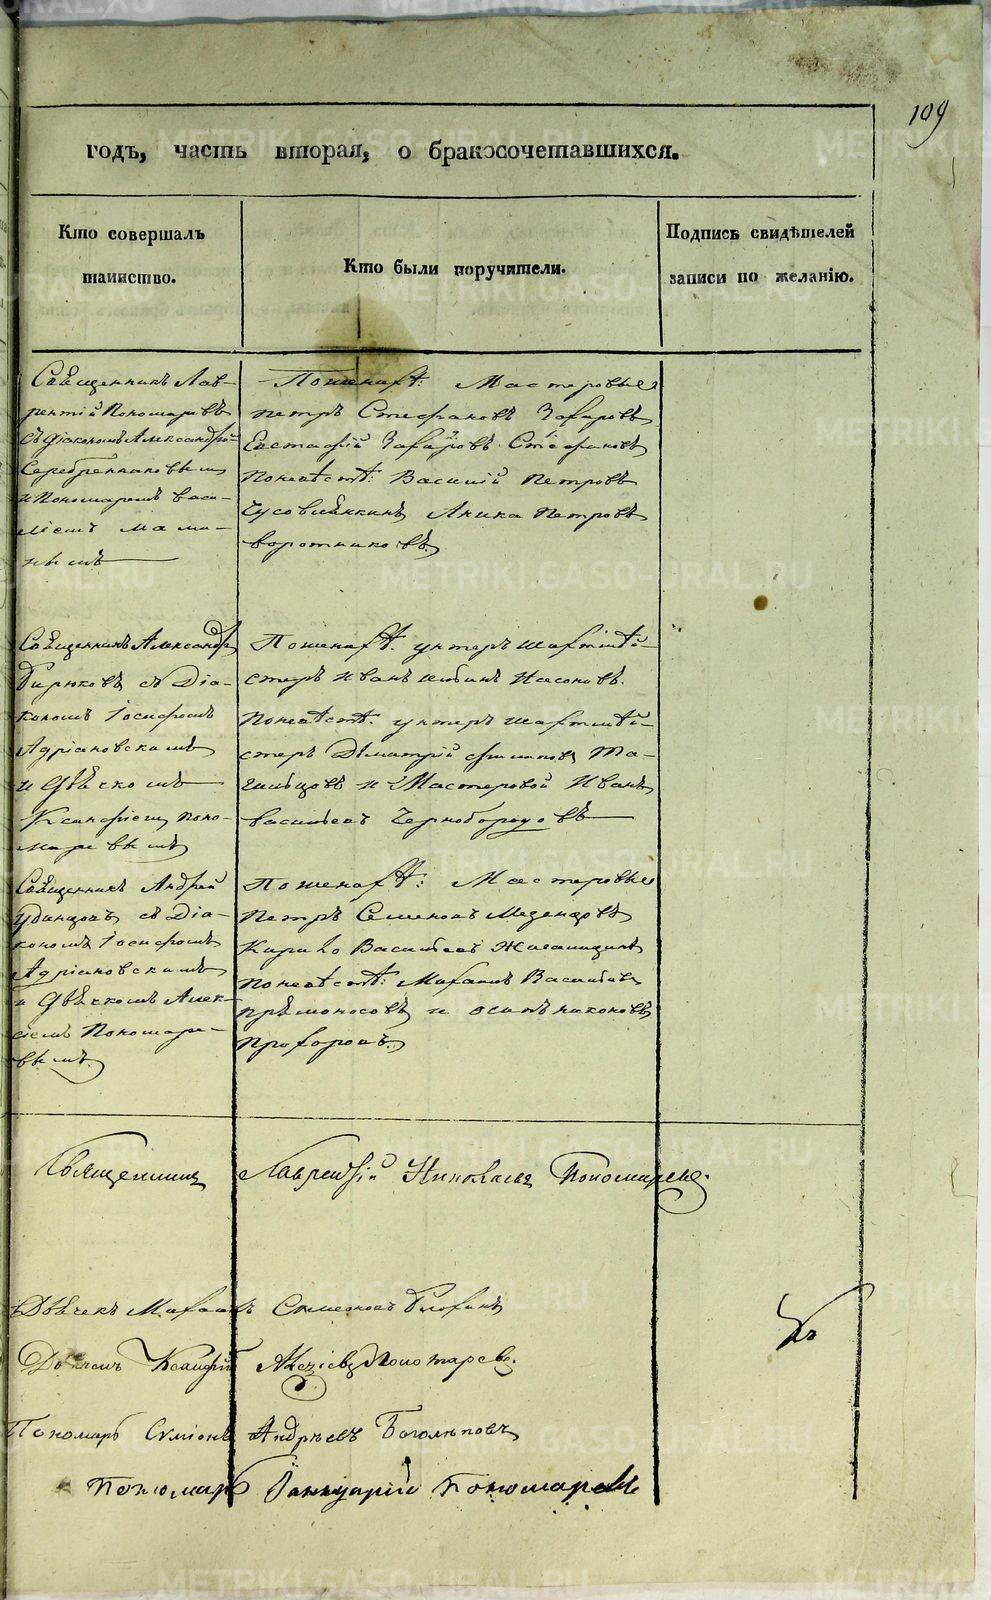 109
годъ, часть вторая, о бракосочетавшихся.
Кто совершалъ
таинство.
Кто были поручители.
Подпись свидѣтелей
записи по желанію.
Священникъ Лав-
рентій Пономаревъ
съ діакономъ Александромъ
Серебренниковымъ
и Пономаремъ Васи-
ліемъ Мами-
нымъ
По женихѣ: Мастеровые
Петръ Стефановъ Захаровъ
Евстафій Захаровъ Стефановъ
По невѣстѣ: Василій Петровъ
Аника Петровъ
Воротниковъ.
Священникъ Александръ
Бирюковъ съ Діа-
кономъ Іосифомъ
Адріановскимъ
и Дьячкомъ
Ксенофонтомъ Поно-
маревымъ
По женихѣ. унтеръ шахтмей-
стеръ Иванъ Насоновъ.
По невѣстѣ. унтеръ шахтмей-
стеръ Дмитрій Филиповъ Та-
гильцовъ и Мастеровой Иванъ
Васильевъ Чернобородовъ
Священникъ Андрей
Удинцовъ съ Діа-
кономъ Іосифомъ
Адріановскимъ
и Дьячкомъ Алек-
сіемъ Пономаре-
вымъ.
По женихѣ: Мастеровые
Петръ Семеновъ Мезенцовъ
Кирило Васильевъ
По невѣстѣ: Михаилъ Васильевъ
Прямоносовъ и Осипъ Никоновъ
Прохоровъ.
Священникъ Лаврентій Николаевъ Пономаревъ.
Дьячекъ Михаилъ Семеновъ
Дьячекъ Ксенофонтъ Пономаревъ.
Пономарь Симеонъ Андреевъ Боголѣповъ
Пономарь Іаннуарій Пономаревъ
METRIKI.GASO-URAL.RU